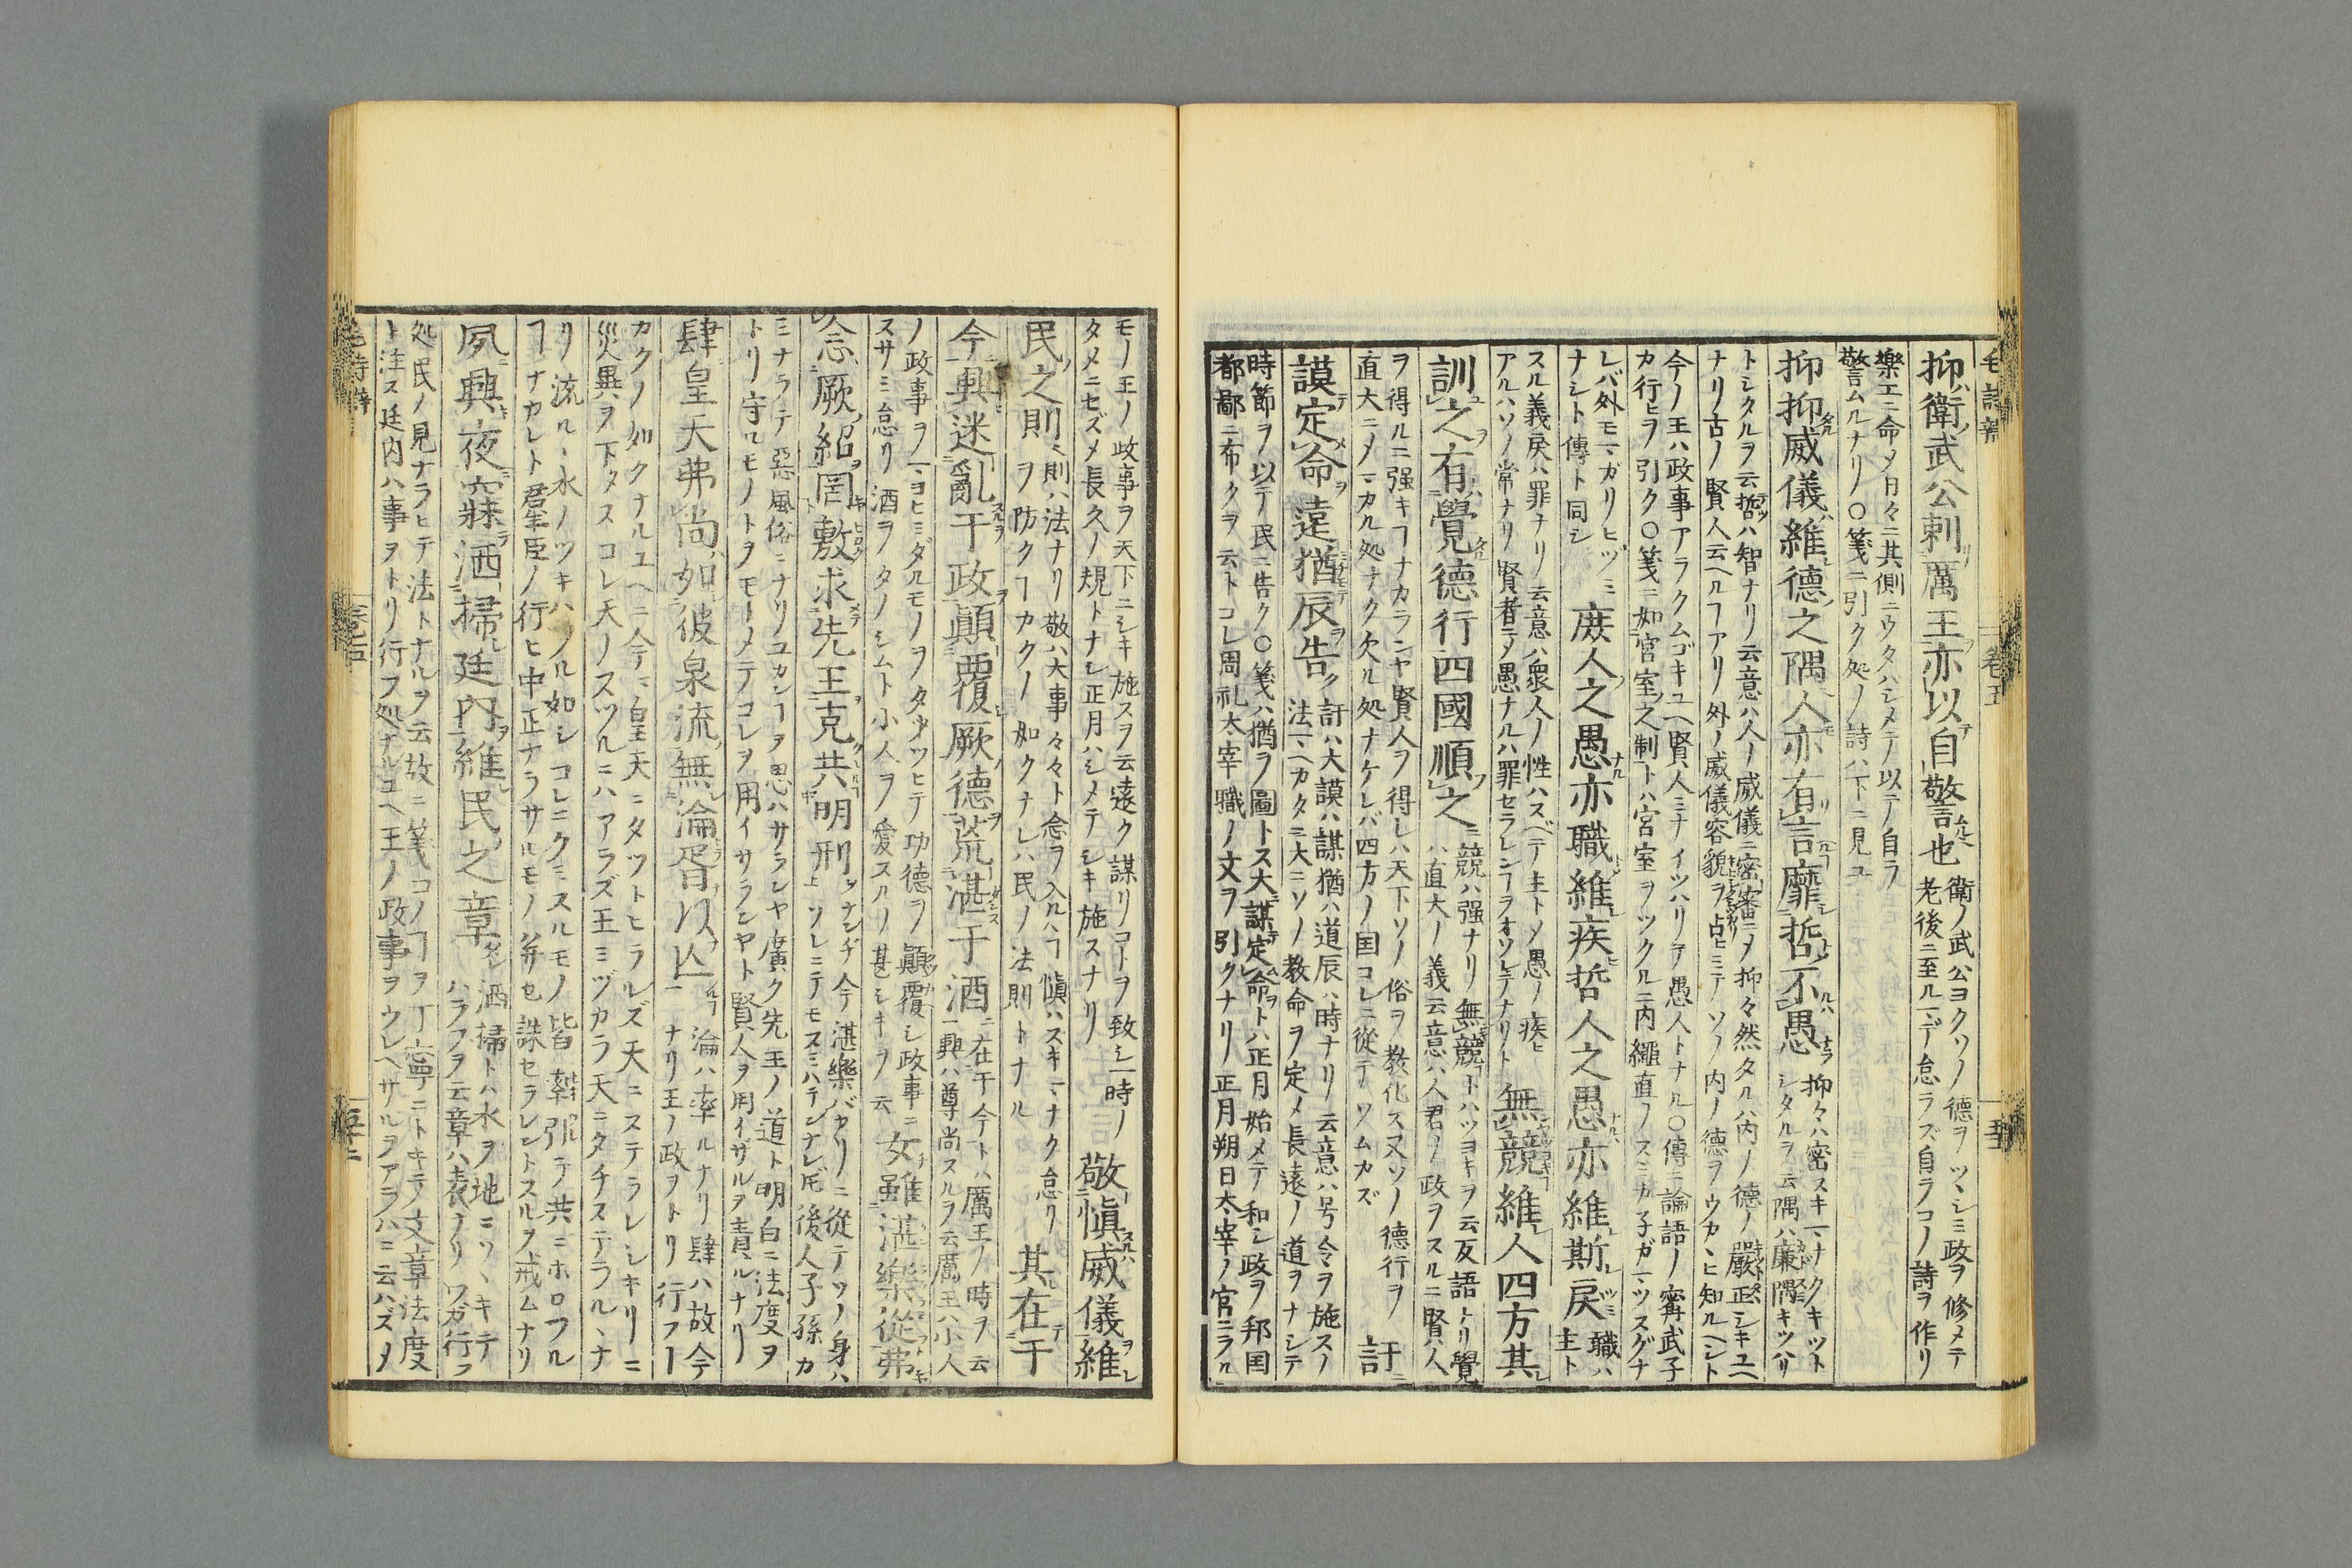 抑衛武公刺厲王亦以自警也 衛ノ武公ヨクソノ德ヲツヽシミ政ヲ修メテ
老後ニ至ルマデ怠ラズ自ラコノ詩ヲ作リ
樂工ニ命メ日々ニ其側ニウタハシメテ以テ自ラ
警ムルナリ○箋ニ引ク処ノ詩ハ下ニ見ユ
抑抑威儀維德之隅人亦有言靡哲不愚 抑々ハ密スキマナクキツト
シタルヲ云隅ハ廉隅キツハリ
トシタルヲ云哲ハ智ナリ云意ハ人ノ威儀ニ密審ニメ抑々然タルハ内ノ德ノ嚴正シキユヘ
ナリ古ノ賢人云ヘルヿアリ外ノ威儀容貌ヲ占ヒミテソノ内ノ德ヲウカヽヒ知ルヘシト
今ノ王ハ政事アラクムゴキユヘ賢人ミナイツハリテ愚人トナル○傳ニ論語ノ甯武子
カ行ヒヲ引ク○箋ニ如宮室之制トハ宮室ヲツクルニ内繩直ノスミカ子ガマツスグナ
レバ外モマガリヒヅミ
ナシト傳ト同シ
庶人之愚亦職維疾哲人之愚亦維斯戾 職ハ
主ト
スル義戾ハ罪ナリ云意ハ衆人ノ性ハスベテ主トメ愚ノ疾ヒ
アルハソノ常ナリ賢者ニテ愚ナルハ罪セラレンヿヲオソレテナリト
無競維人四方其
訓之有覺德行四國順之 競ハ强ナリ無競トハツヨキヲ云反語ナリ覺
ハ直大ノ義云意ハ人君ノ政ヲスルニ賢人
ヲ得ルニ强キヿナカランヤ賢人ヲ得レハ天下ソノ俗ヲ教化ス又ソノ德行ヲ
直大ニメマカル処ナク欠ル処ナケレバ四方ノ国コレニ從テソムカズ
訏
謨定命遠猶辰告 訏ハ大謨ハ謀猶ハ道辰ハ時ナリ云意ハ号令ヲ施スノ
法マヘカタニ大ニソノ教命ヲ定メ長遠ノ道ヲナシテ
時節ヲ以テ民ニ告ク○箋ハ猶ヲ圖トス大謀定命トハ正月始メテ和シ政ヲ邦国
都鄙ニ布クヲ云トコレ周礼太宰職ノ文ヲ引クナリ正月朔日太宰ノ官ニヲル
モノ王ノ政事ヲ天下ニシキ施スヲ云遠ク謀リコトヲ致シ一時ノ
タメニセズメ長久ノ規トナシ正月ハシメテシキ施スナリ
敬愼威儀維
民之則 則ハ法ナリ敬ハ大事々々ト念ヲ入ルヽヿ愼ハスキマナク怠リ
ヲ防クヿカクノ如クナレハ民ノ法則トナル
其在于
今興迷亂于政顚覆厥德荒湛于酒 在于今トハ厲王ノ時ヲ云
興ハ尊尚スルヲ云厲王ハ小人
ノ政事ヲマヨヒミダルモノヲタツツヒテ功德ヲ顚覆シ政事ニ
スサミ怠リ酒ヲタノシムト小人ヲ愛スルノ甚シキヲ云
女雖湛樂從弗
念厥紹罔敷求先王克共明刑 ナンヂ今湛樂バカリニ從テソノ身ハ
ソレニテモスミハテンナレ𪜈後人子孫カ
ミナラテ惡風俗ニナリユカンヿヲ思ハサランヤ廣ク先王ノ道ト明白ニ法度ヲ
トリ守ルモノトヲモーメテコレヲ用イサランヤト賢人ヲ用イザルヲ責ルナリ
肆皇天弗尚如彼泉流無淪胥以亡 淪ハ率ルナリ肆ハ故今
ナリ王ノ政ヲトリ行フヿ
カクノ如クナルユヘニ今ニ皇天ニタツトヒラルズ天ニステラレシキリニ
災異ヲ下タスコレ天ノスツルニハアラズ王ミヅカラ天ニタチステラルヽナ
リ流ルヽ水ノツキハツル如シコレニクミスルモノ皆率引テ共ニホロフル
ヿナカレト羣臣ノ行ヒ中正ナラサルモノ并セ誅セラレントスルヲ戒ムナリ
夙興夜寐洒掃廷內維民之章 洒掃トハ水ヲ地ニソヽキテ
ハラフヲ云章ハ表ナリワガ行フ
処民ノ見ナラヒテ法トナルヲ云故ニ箋コノヿヲ丁寧ニトキテ文章法度
ト注ス廷内ハ事ヲトリ行フ処ナルユヘ王ノ政事ヲウレヘサルヲアラハニ云ハズメ